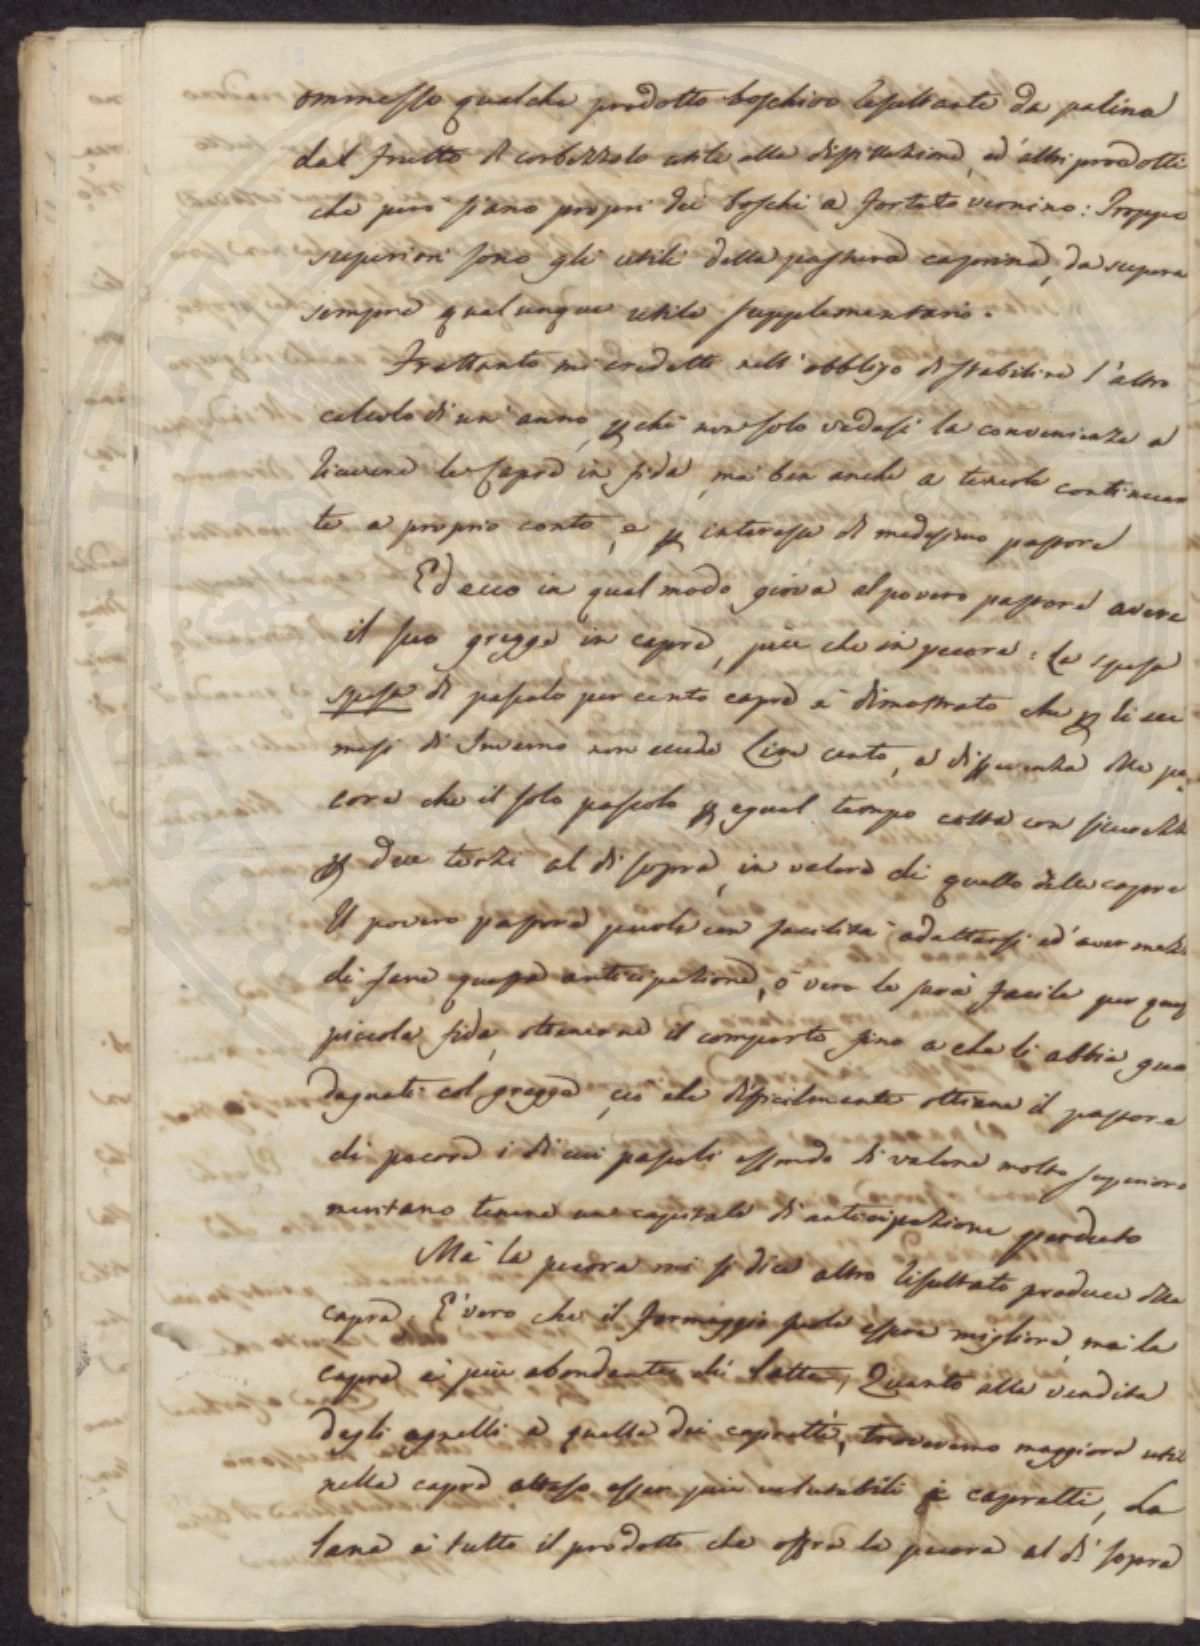 ommesso qualche prodotto boschivo resultante da palina
dal frutto di corbezzolo utile alla distillazione, ed altri prodotti
che però siano propri dei boschi a forteto vernino: Troppo
superiori sono gli utili della pastura caprina, da supera
sempre qualunque utile supplementario.
Frattanto mi credetti nell'obbligo di stabilire l'altro
calcolo di un'anno, perchè non solo vedasi la convenienza a
ricevere le Capre in fida, mà ben anche a tenerle continuen
te a proprio conto, e per interesse di medesimo pastore
Ed ecco in qual modo giova al povero pastore avere
il suo gregge in capre, più che in pecore: La spesa
spesa di pascolo per cento capre è dimostrato che per li sei
mesi di Inverno non eccede Lire cento, a differenza delle pe-
core che il solo pascolo per egual tempo costa con sicurezza
per due terzi al di sopra, in valore di quello delle capre
Il povero pastore puole con facilità adattarsi ed aver mezzi
di fare questa anticipazione, o vero le sarà facile per ques
piccola fida, ottenerne il comporto fino a che li abbia gua
dagnati col gregge, ciò che difficilmente ottiene il pastore
di pecore i di cui pascoli essendo di valore molto superiore
meritano tenere un capitale di anticipazione perduto
Mà la pecora mi si dice altro resultato produce della
capra, E' vero che il formaggio puole essere migliore, mà la
capra è più abondante di latte, Quanto alla vendita
degli agnelli e quella dei capretti, troveremo maggiore utile
nella capra atteso esser più valutabili i capretti, La
lana è tutto il prodotto che offre la pecora al di sopra